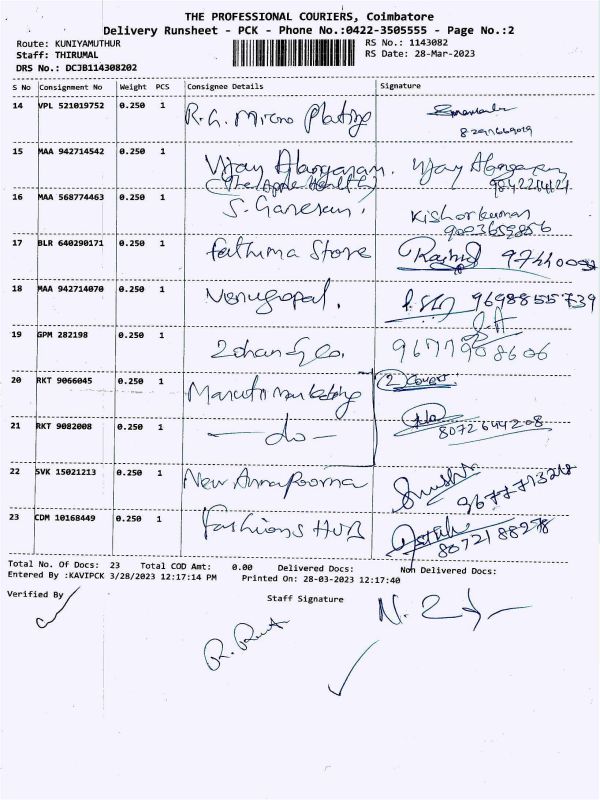 THE PROFESSIONAL COURIERS, Coimbatore
Delivery Runsheet - PCK - Phone No.:0422-3505555 - Page No.:2
Route: KUNIYAMUTHUR RS No.: 1143082
Staff: THIRUMAL RS Date: 28-Mar-2023
DRS No.: DCJB114308202
S No Consignment No Weight PCS Consignee Details Signature
14 VPL 521019752 0.250 1 R.G. Micro Plating
15 MAA 942714542 0.250 1 Vijay Alangaram. Vijay
(The Apple Health)
16 MAA 568774463 0.250 1 S. Ganesan. Kishorkumar
9003659856
17 BLR 640290171 0.250 1 Fathima Store
18 MAA 942714070 0.250 1 Venugopal. 9698855739
19 GPM 282198 0.250 1 Zohan & Co. 9677908606
20 RKT 9066045 0.250 1 Maruti Marketing 2 Cover
21 RKT 9082008 0.250 1 -do- 8072644208
22 SVK 15021213 0.250 1 New Annapoorna
23 CDM 10168449 0.250 1 Fashions HUB 8072188278
Total No. Of Docs: 23 Total COD Amt: 0.00 Delivered Docs: Non Delivered Docs:
Entered By :KAVIPCK 3/28/2023 12:17:14 PM Printed On: 28-03-2023 12:17:40
Verified By Staff Signature